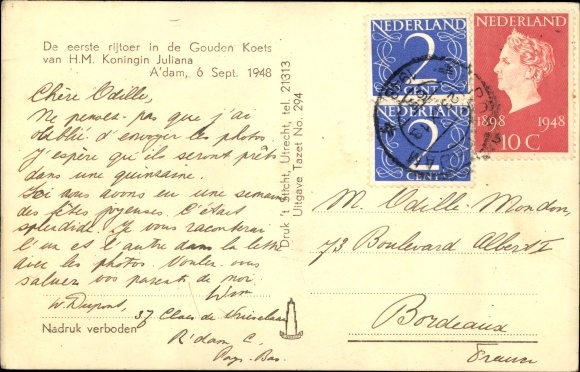 De eerste rijtoer in de Gouden Koets
van H.M. Koningin Juliana
A'dam, 6 Sept. 1948
Chère Odille,
Ne pensez pas que j'ai
oublié d'envoyer les photos
J'espère qu'ils seront prêts
dans une quinzaine.
Ici nous avons eu une semaine
des fêtes joyeuses. C'était
splendide. Je vous raconterai
l'un et l'autre dans la lettre
avec les photos. Voulez-vous
saluez vos parents de moi
Wim
W. Dupont,
37 Claes de Vrieselaan
R'dam C.
Pays-Bas.
Nadruk verboden
Druk 't Sticht, Utrecht, tel. 21313
Uitgave Tazet No. 294
NEDERLAND
2
CENT
NEDERLAND
2
NEDERLAND
1898 1948
10 C
M. Odille Mondon,
73 Boulevard Albert I
Bordeaux
France